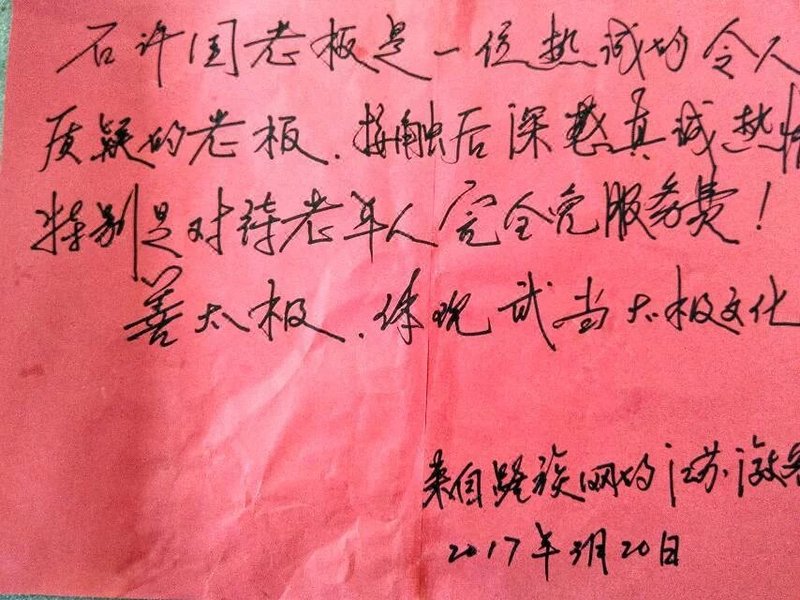 石许国老板是一位热诚的令人
质疑的老板.接触后深感真诚热情
特别是对待老年人完全免服务费！
善太极.体现武当太极文化
来自驴族网的江苏游客
2017年3月20日